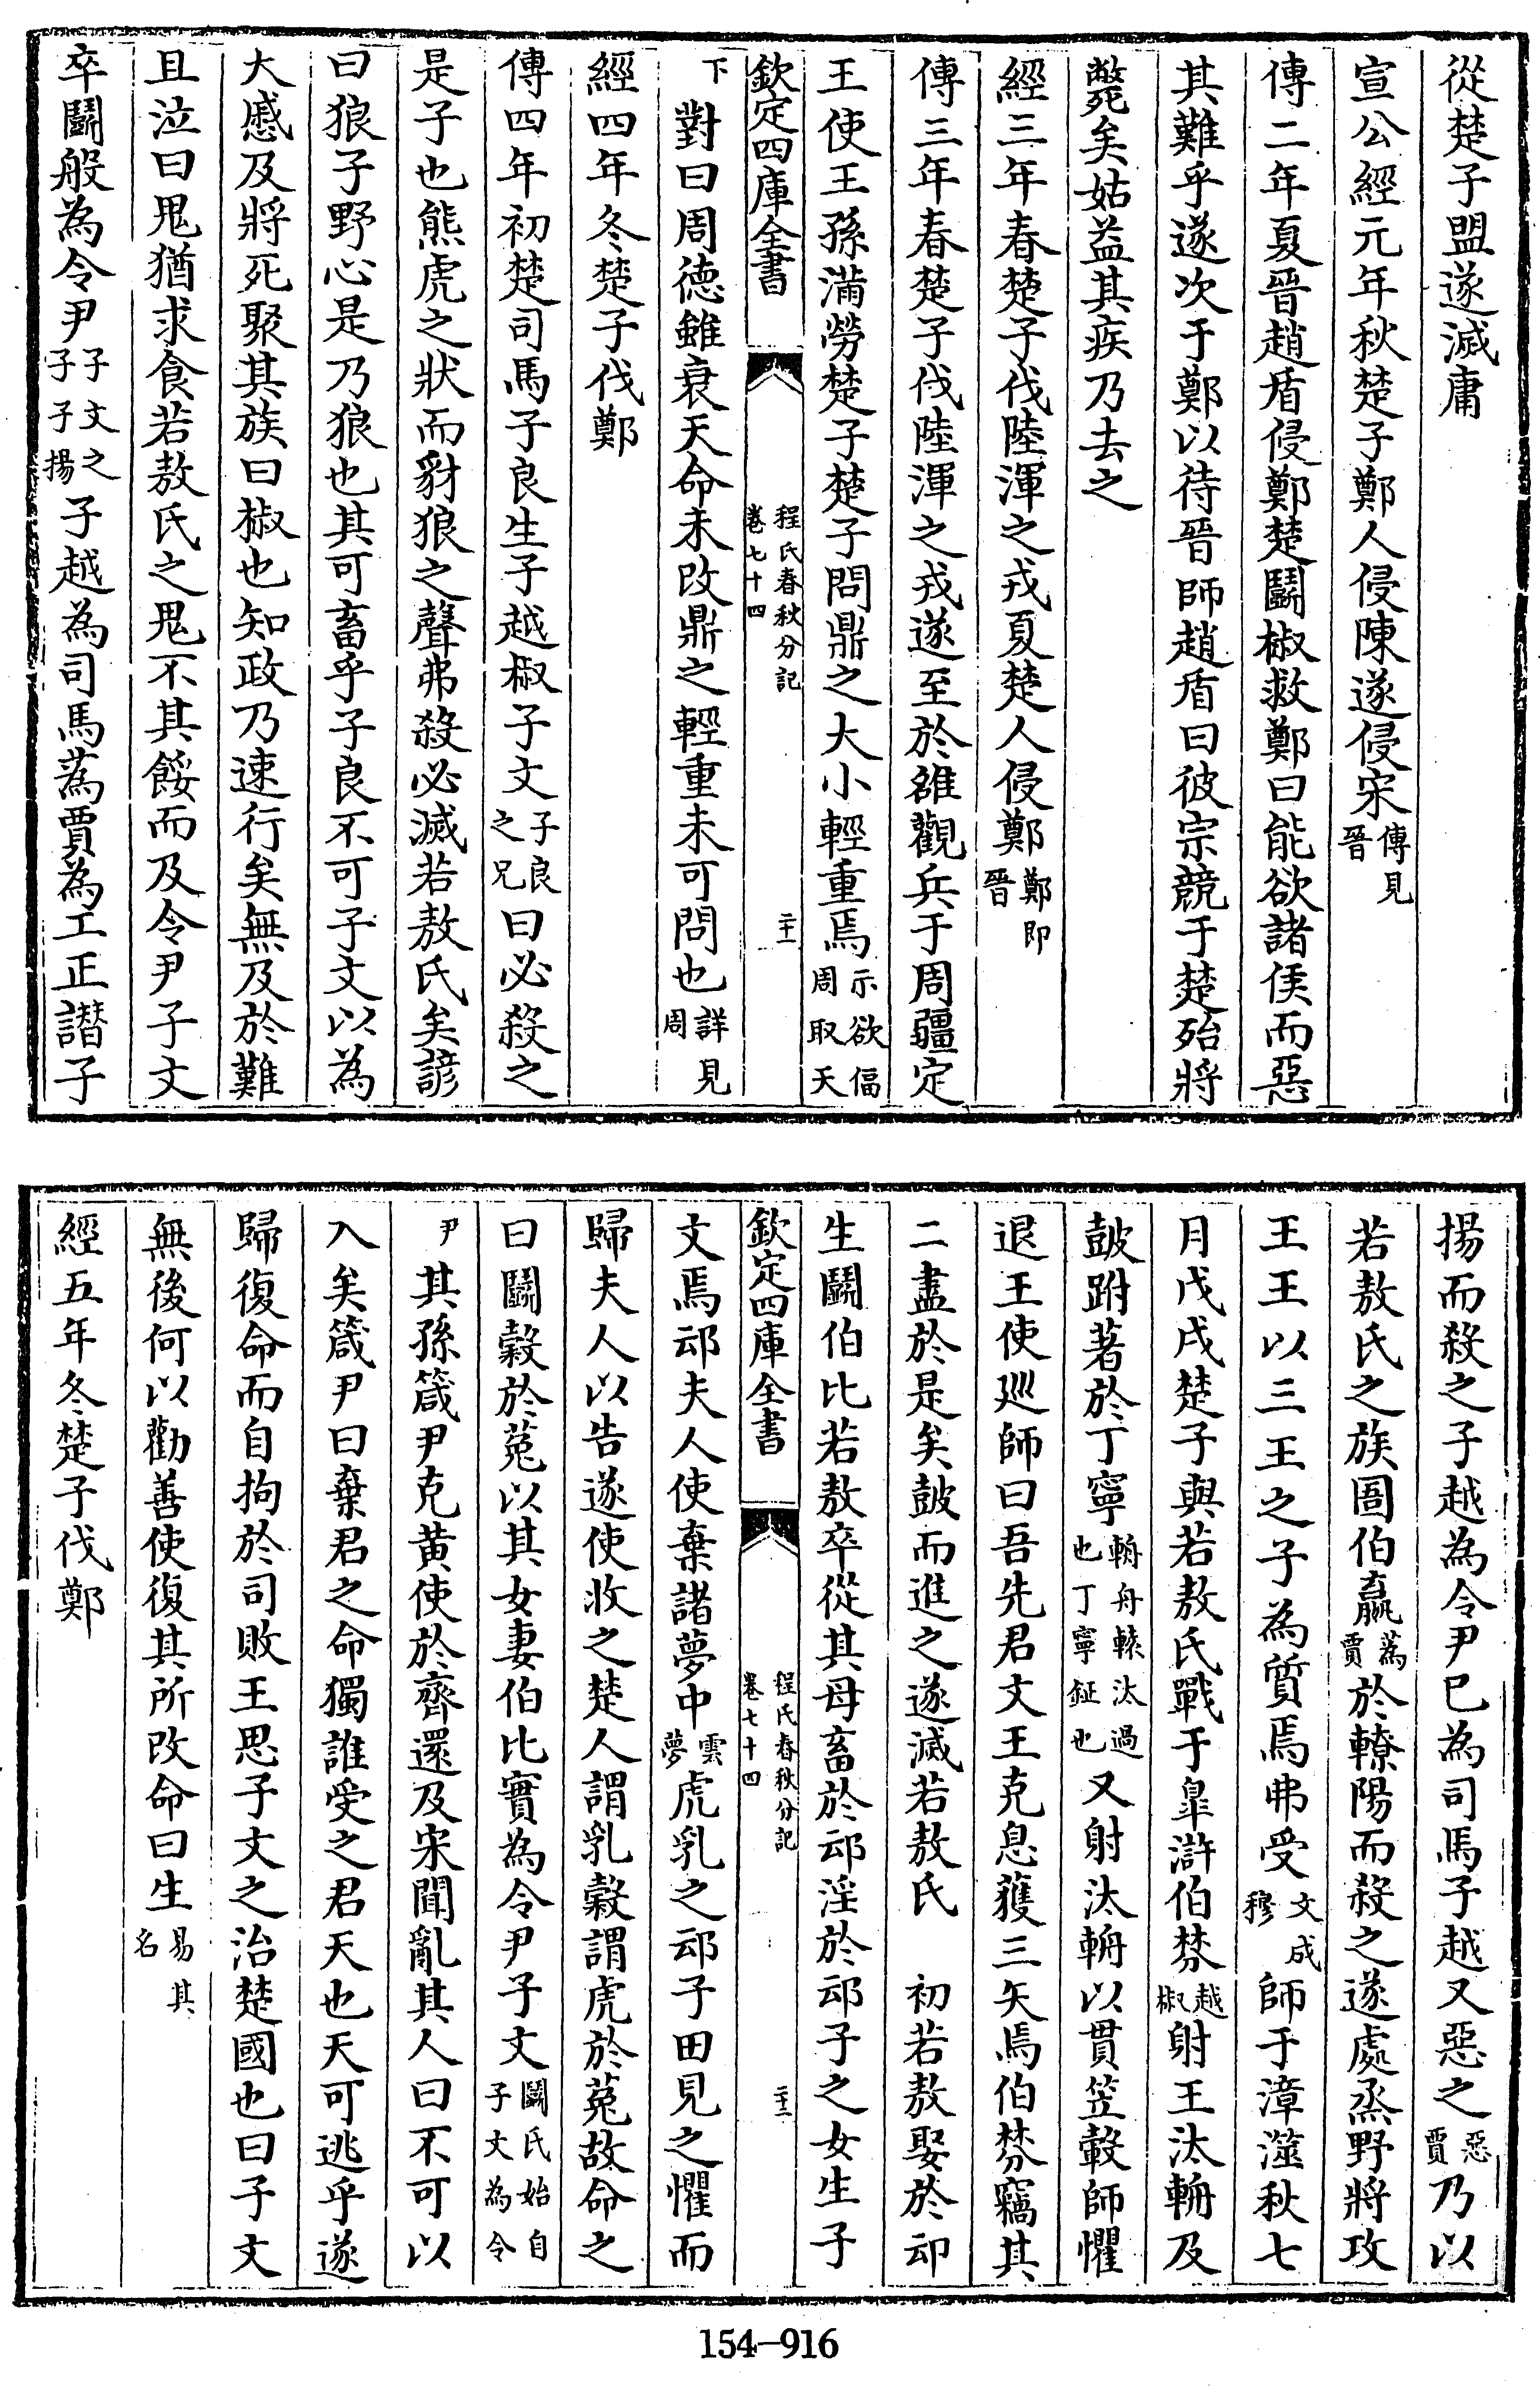 從楚子盟遂滅庸
宣公經元年秋楚子鄭人侵陳遂侵宋傳見晉
傳二年夏晉趙盾侵鄭楚鬬椒救鄭曰能欲諸侯而惡
其難乎遂次于鄭以待晉師趙盾曰彼宗競于楚殆將
斃矣姑益其疾乃去之
經三年春楚子伐陸渾之戎夏楚人侵鄭鄭即晉
傳三年春楚子伐陸渾之戎遂至於雒觀兵于周疆定
王使王孫滿勞楚子楚子問鼎之大小輕重焉示欲偪周取天
欽定四庫全書 程氏春秋分記 卷七十四 二十一
下對曰周德雖衰天命未改鼎之輕重未可問也詳見周
經四年冬楚子伐鄭
傳四年初楚司馬子良生子越椒子文子良之兄曰必殺之
是子也熊虎之狀而豺狼之聲弗殺必滅若敖氏矣諺
曰狼子野心是乃狼也其可畜乎子良不可子文以為
大慼及將死聚其族曰椒也知政乃速行矣無及於難
且泣曰鬼猶求食若敖氏之鬼不其餒而及令尹子文
卒鬬般為令尹子文之子子揚子越為司馬蒍賈為工正譖子
揚而殺之子越為令尹已為司馬子越又惡之惡賈乃以
若敖氏之族圄伯嬴蒍賈於轑陽而殺之遂處烝野將攻
王王以三王之子為質焉弗受文成穆師于漳澨秋七
月戊戌楚子與若敖氏戰于臯滸伯棼越椒射王汰輈及
鼓跗著於丁寧輈舟轅汰過也丁寧鉦也又射汰輈以貫笠轂師懼
退王使巡師曰吾先君文王克息獲三矢焉伯棼竊其
二盡於是矣鼓而進之遂滅若敖氏 初若敖娶於䢵
生鬬伯比若敖卒從其母畜於䢵淫於䢵子之女生子
欽定四庫全書 程氏春秋分記 卷七十四 二十二
文焉䢵夫人使棄諸夢中雲夢虎乳之䢵子田見之懼而
歸夫人以告遂使收之楚人謂乳穀謂虎於菟故命之
曰鬬穀於菟以其女妻伯比實為令尹子文鬬氏始自子文為令
尹其孫箴尹克黃使於齊還及宋聞亂其人曰不可以
入矣箴尹曰棄君之命獨誰受之君天也天可逃乎遂
歸復命而自拘於司敗王思子文之治楚國也曰子文
無後何以勸善使復其所改命曰生易其名
經五年冬楚子伐鄭
154-916